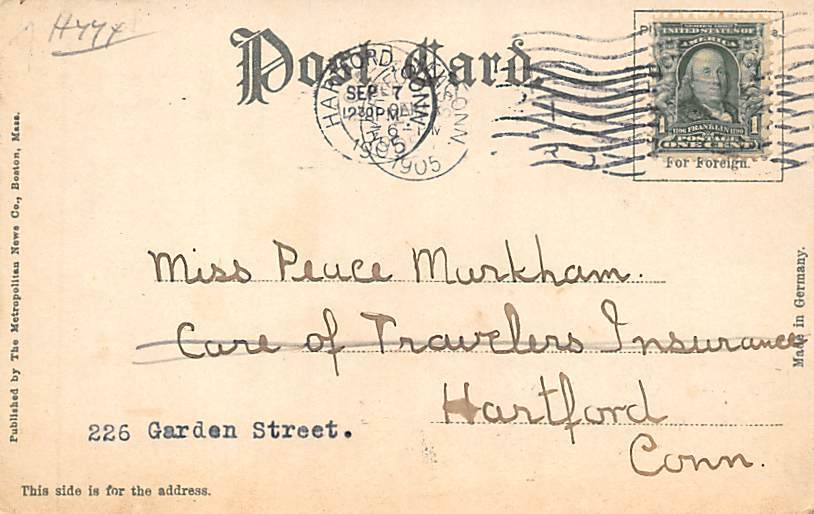 Post Card.
HARTFORD, CONN.
SEP 7
1230PM
1905
SERIES 1902
UNITED STATES OF
AMERICA
1706 FRANKLIN 1790
POSTAGE
ONE CENT
1
For Foreign.
Miss Peace Markham.
Care of Travelers Insurance
Hartford
Conn.
226 Garden Street.
This side is for the address.
Published by The Metropolitan News Co., Boston, Mass.
Made in Germany.